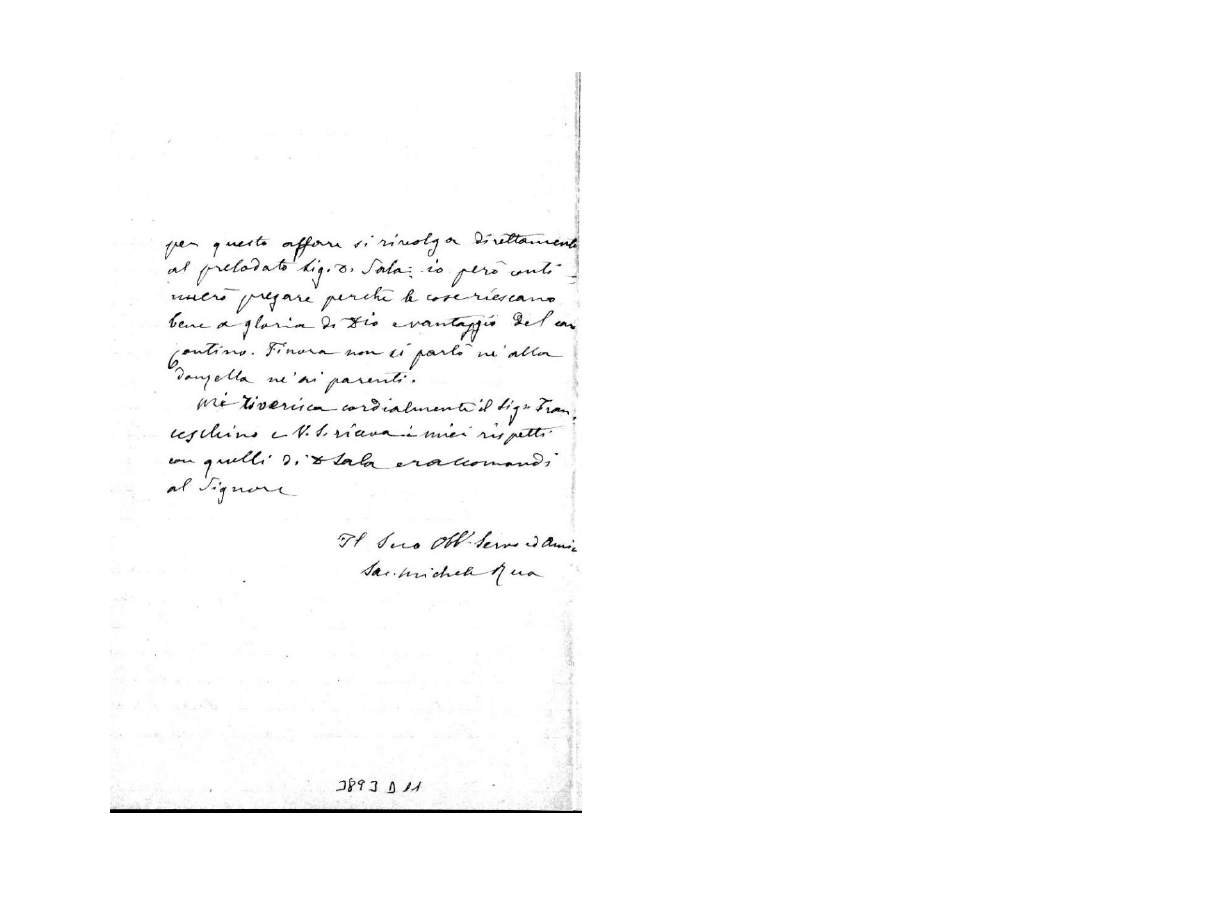 per questo affare si rivolga direttamente
al prelodato Sig. D. Sala: io però conti
nuerò pregare perchè le cose riescano
bene a gloria di Dio e vantaggio del con
contino. Finora non si parlò nè alla
donzella nè ai parenti.
Mi riverisca cordialmente il Sigr Fran
ceschino e V. S. riceva i miei rispetti
con quelli di D Sala e raccomandi
al Signore
Il Suo Obb. Servo ed Amic
Sac. Michele Rua
3893 D 11